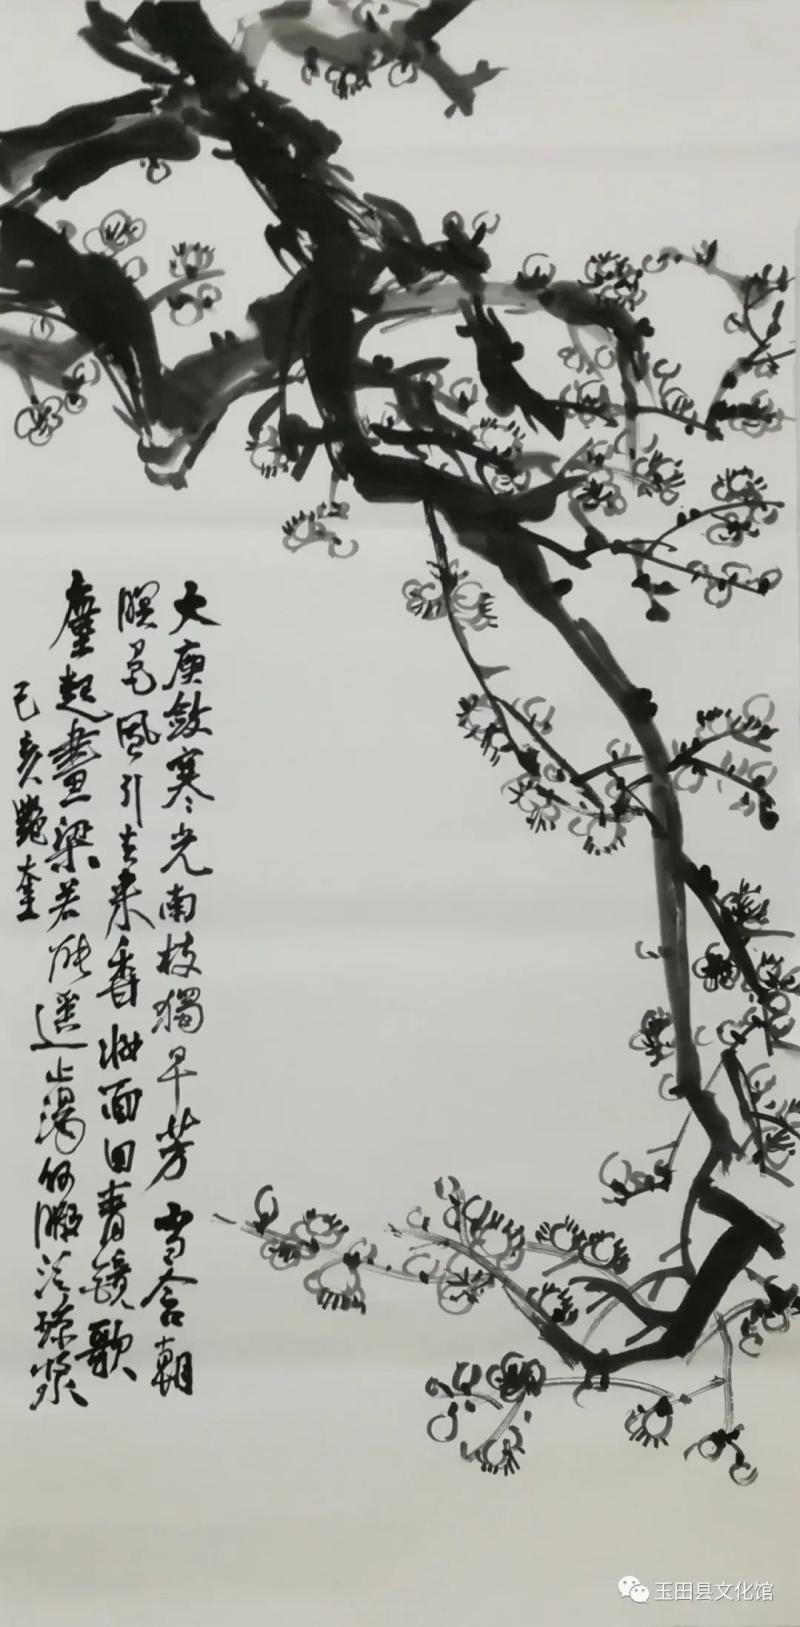 大庾斂寒光南枝獨早芳雪含朝
暝色風引去来香妝面回青镜歌
塵起畫梁若能遥止渴何暇泛琼漿
己亥艷奎
玉田县文化馆